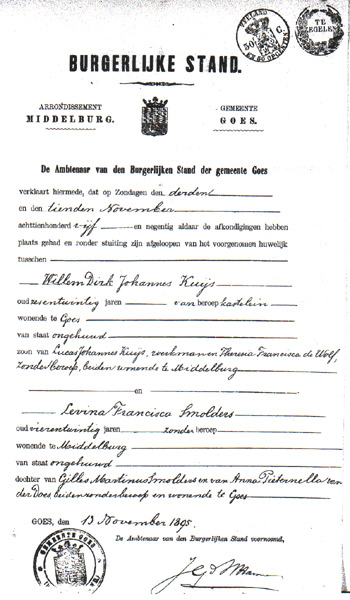 ZEELAND
50 C
TE
ZEGELEN
BURGERLIJKE STAND.
ARRONDISSEMENT
MIDDELBURG.
GEMEENTE
GOES.
De Ambtenaar van den Burgerlijken Stand der gemeente Goes
verklaart hiermede, dat op Zondagen den derden
en den tienden November
achttienhonderd vijf en negentig aldaar de afkondigingen hebben
plaats gehad en zonder stuiting zijn afgeloopen van het voorgenomen huwelijk
tusschen
Willem Dirk Johannes Kuijs
oud zeventwintig jaren van beroep kastelein
wonende te Goes
van staat ongehuwd
zoon van Lucas Johannes Kuijs, werkman en Theresa Francisca de Wolf,
zonder beroep, beiden wonende te Middelburg
en
Levina Francisca Smolders
oud vierentwintig jaren zonder beroep
wonende te Middelburg
van staat ongehuwd
dochter van Gilles Martinus Smolders en van Anna Pieternella van
der Does, beiden zonder beroep en wonende te Goes
GOES, den 13 November 1895.
De Ambtenaar van den Burgerlijken Stand voornoemd,
GEMEENTE GOES